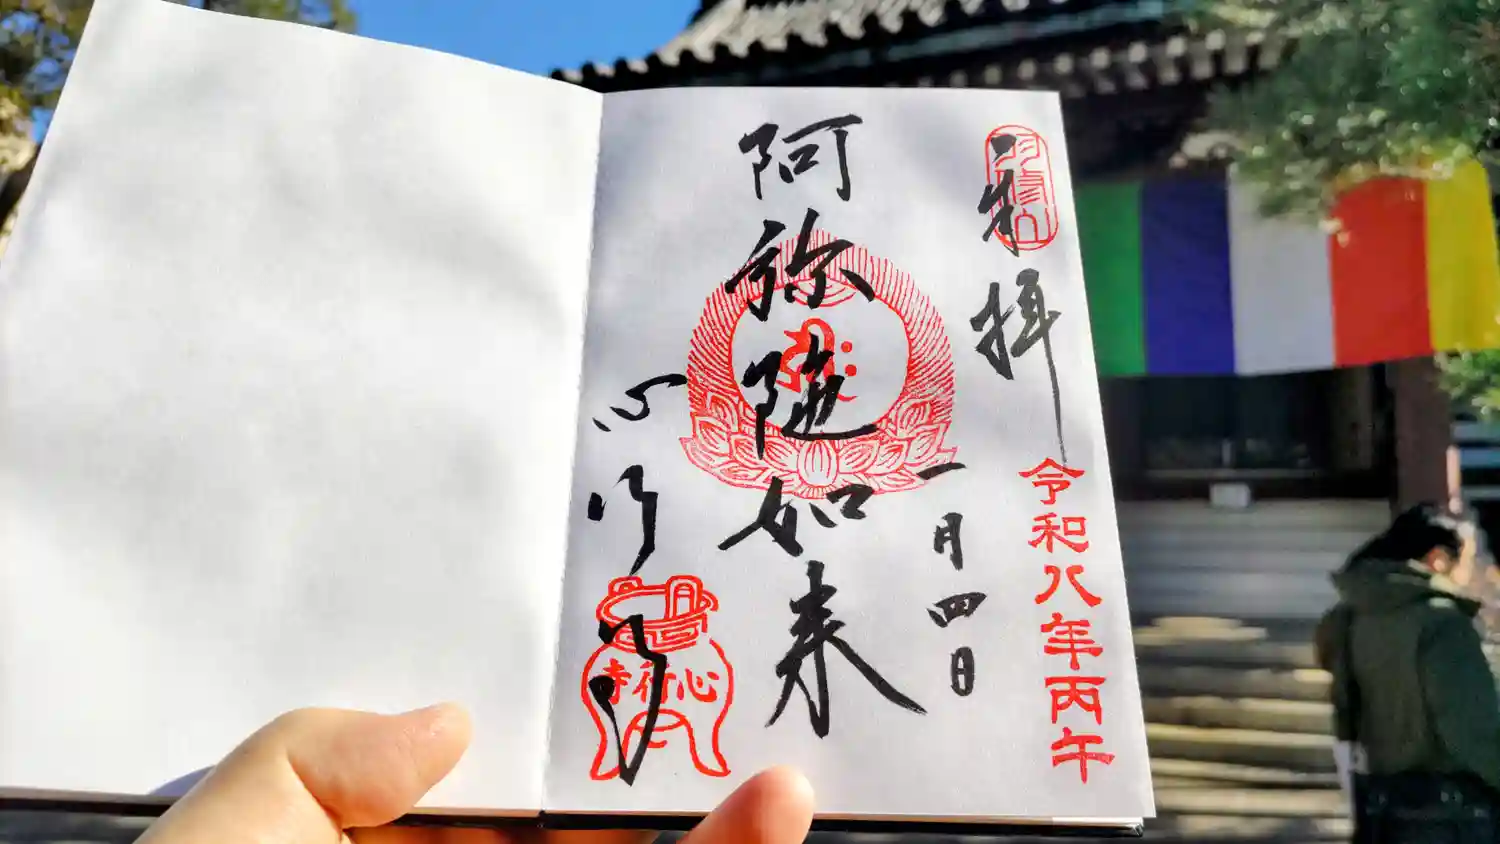 奉拝
令和八年丙午
一月四日
阿弥陀如来
心行寺
心行寺